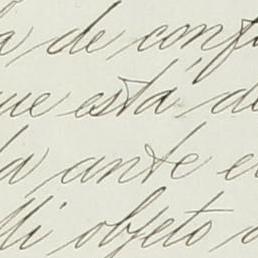 a de conf
que está de
da ante e
Mi objeto a